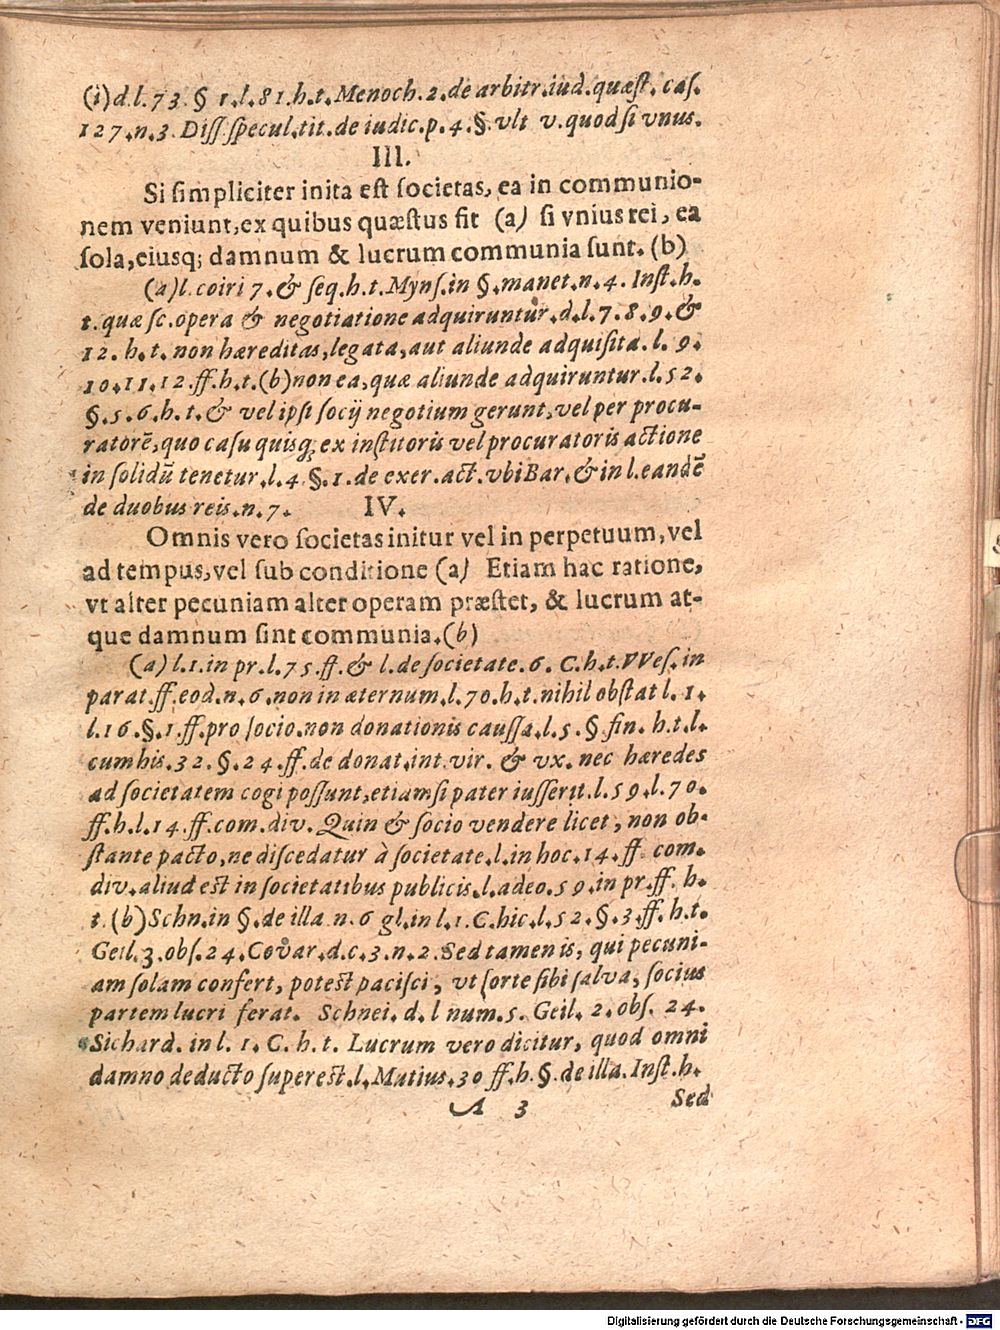 (i)d.l.73.§ 1.l.81.h.t.Menoch.2.de arbitr.iud.quæst.caſ.
127.n.3.Diſſ.ſpecul.tit.de iudic.p.4.§.vlt v.quod ſi vnus.
III.
Si ſimpliciter inita eſt ſocietas, ea in communio-
nem veniunt,ex quibus quæſtus fit (a) ſi vnius rei, ea
ſola,eiusq; damnum & lucrum communia ſunt.(b)
(a)l.coiri 7.& ſeq.h.t.Mynſ.in §.manet.n.4.Inſt.h.
t.quæ ſc.opera & negotiatione adquiruntur.d.l.7.8.9.&
12.h.t.non hæreditas,legata,aut aliunde adquiſita.l.9.
10.11.12.ff.h.t.(b)non ea,quæ aliunde adquiruntur.l.52.
§.5.6.h.t.& vel ipſi ſocij negotium gerunt,vel per procu-
ratorē,quo caſu quisq; ex inſtitoris vel procuratoris actione
in ſolidū tenetur.l.4.§.1.de exer.act.vbi Bar.& in l.eandē
de duobus reis.n.7. IV.
Omnis vero ſocietas initur vel in perpetuum,vel
ad tempus,vel ſub conditione (a) Etiam hac ratione,
vt alter pecuniam alter operam præſtet, & lucrum at-
que damnum ſint communia.(b)
(a)l.1.in pr.l.75.ff.& l.de ſocietate.6.C.h.t.VVeſ.in
parat.ff.eod.n.6.non in æternum.l.70.h.t.nihil obſtat l.1.
l.16.§.1.ff.pro ſocio.non donationis cauſſa.l.5.§.fin.h.t.l.
cum his.32.§.24.ff.de donat.int.vir.& vx.nec hæredes
ad ſocietatem cogi poſſunt,etiamſi pater iuſſerit.l.59.l.70.
ff.h.l.14.ff.com.div.Quin & ſocio vendere licet, non ob-
ſtante pacto,ne diſcedatur à ſocietate.l.in hoc.14.ff.com.
div.aliud eſt in ſocietatibus publicis.l.adeo.59.in pr.ff.h.
t.(b)Schn.in §.de illa n.6 gl.in l.1.C.hic.l.52.§.3.ff.h.t.
Geil.3.obſ.24.Covar.d.c.3.n.2.Sed tamen is, qui pecuni-
am ſolam confert, poteſt paciſci, vt ſorte ſibi ſalva, ſocius
partem lucri ferat. Schnei.d.l num.5. Geil.2.obſ.24.
Sichard.in l.1.C.h.t. Lucrum vero dicitur, quod omni
damno deducto ſupereſt.l.Mutius.30 ff.h.§.de illa.Inſt.h.
A 3 Sed
Digitalisierung gefördert durch die Deutsche Forschungsgemeinschaft - DFG